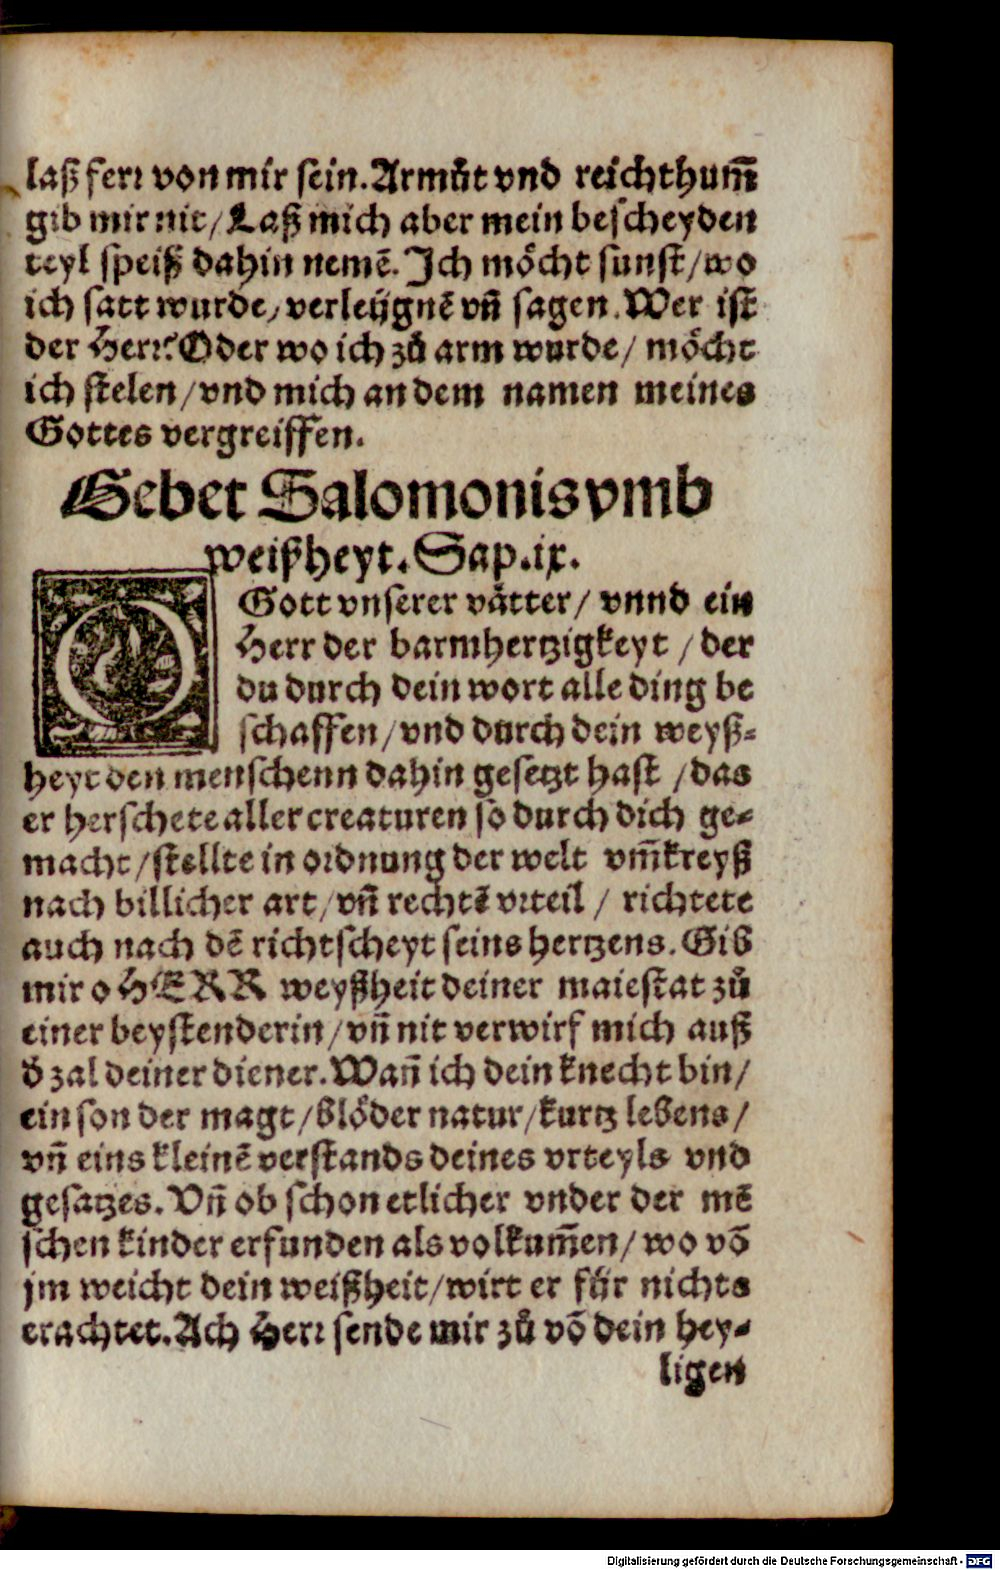 laß ferr von mir sein. Armůt vnd reichthum̄
gib mir nit / Laß mich aber mein bescheyden
teyl speiß dahin nemē. Ich möcht sunst / wo
ich satt wurde / verleügnē vn̄ sagen. Wer ist
der Herr? Oder wo ich zů arm wurde / möcht
ich stelen / vnd mich an dem namen meines
Gottes vergreiffen.
Gebet Salomonis vmb
weißheyt. Sap. ix.
O Gott vnserer vätter / vnnd ein
Herr der barmhertzigkeyt / der
du durch dein wort alle ding be
schaffen / vnd durch dein weyß-
heyt den menschenn dahin gesetzt hast / das
er herschete aller creaturen so durch dich ge-
macht / stellte in ordnung der welt vm̄kreyß
nach billicher art / vn̄ rechtē vrteil / richtete
auch nach dē richtscheyt seins hertzens. Gib
mir o HERR weyßheit deiner maiestat zů
einer beystenderin / vn̄ nit verwirf mich auß
d̄ zal deiner diener. Wan̄ ich dein knecht bin /
ein son der magt / blöder natur / kurtz lebens /
vn̄ eins kleinē verstands deines vrteyls vnd
gesatzes. Vn̄ ob schon etlicher vnder der mē
schen kinder erfunden als volkum̄en / wo vō
jm weicht dein weißheit / wirt er für nichts
erachtet. Ach Herr sende mir zů vō dein hey-
ligen
Digitalisierung gefördert durch die Deutsche Forschungsgemeinschaft - DFG